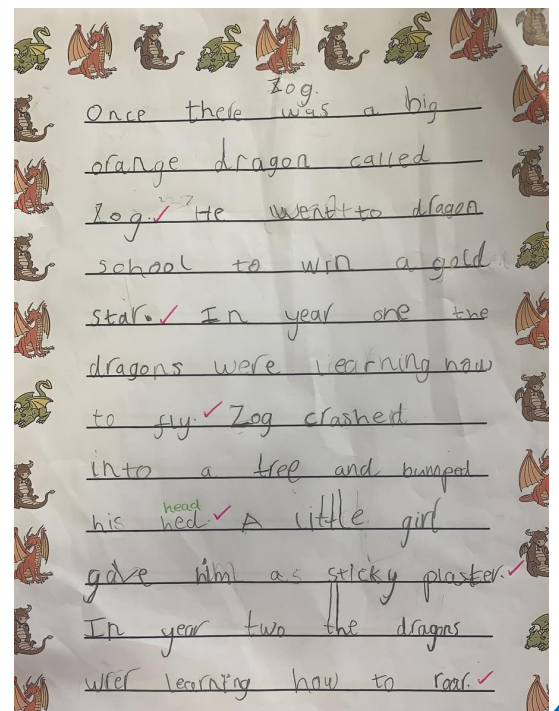 Zog.
Once there was a big
orange dragon called
Zog. He went to dragon
school to win a gold
star. In year one the
dragons were learning how
to fly. Zog crashed
into a tree and bumped
head
his hed. A little girl
gave him a s sticky plaster.
In year two the dragons
wrer learning how to roar.